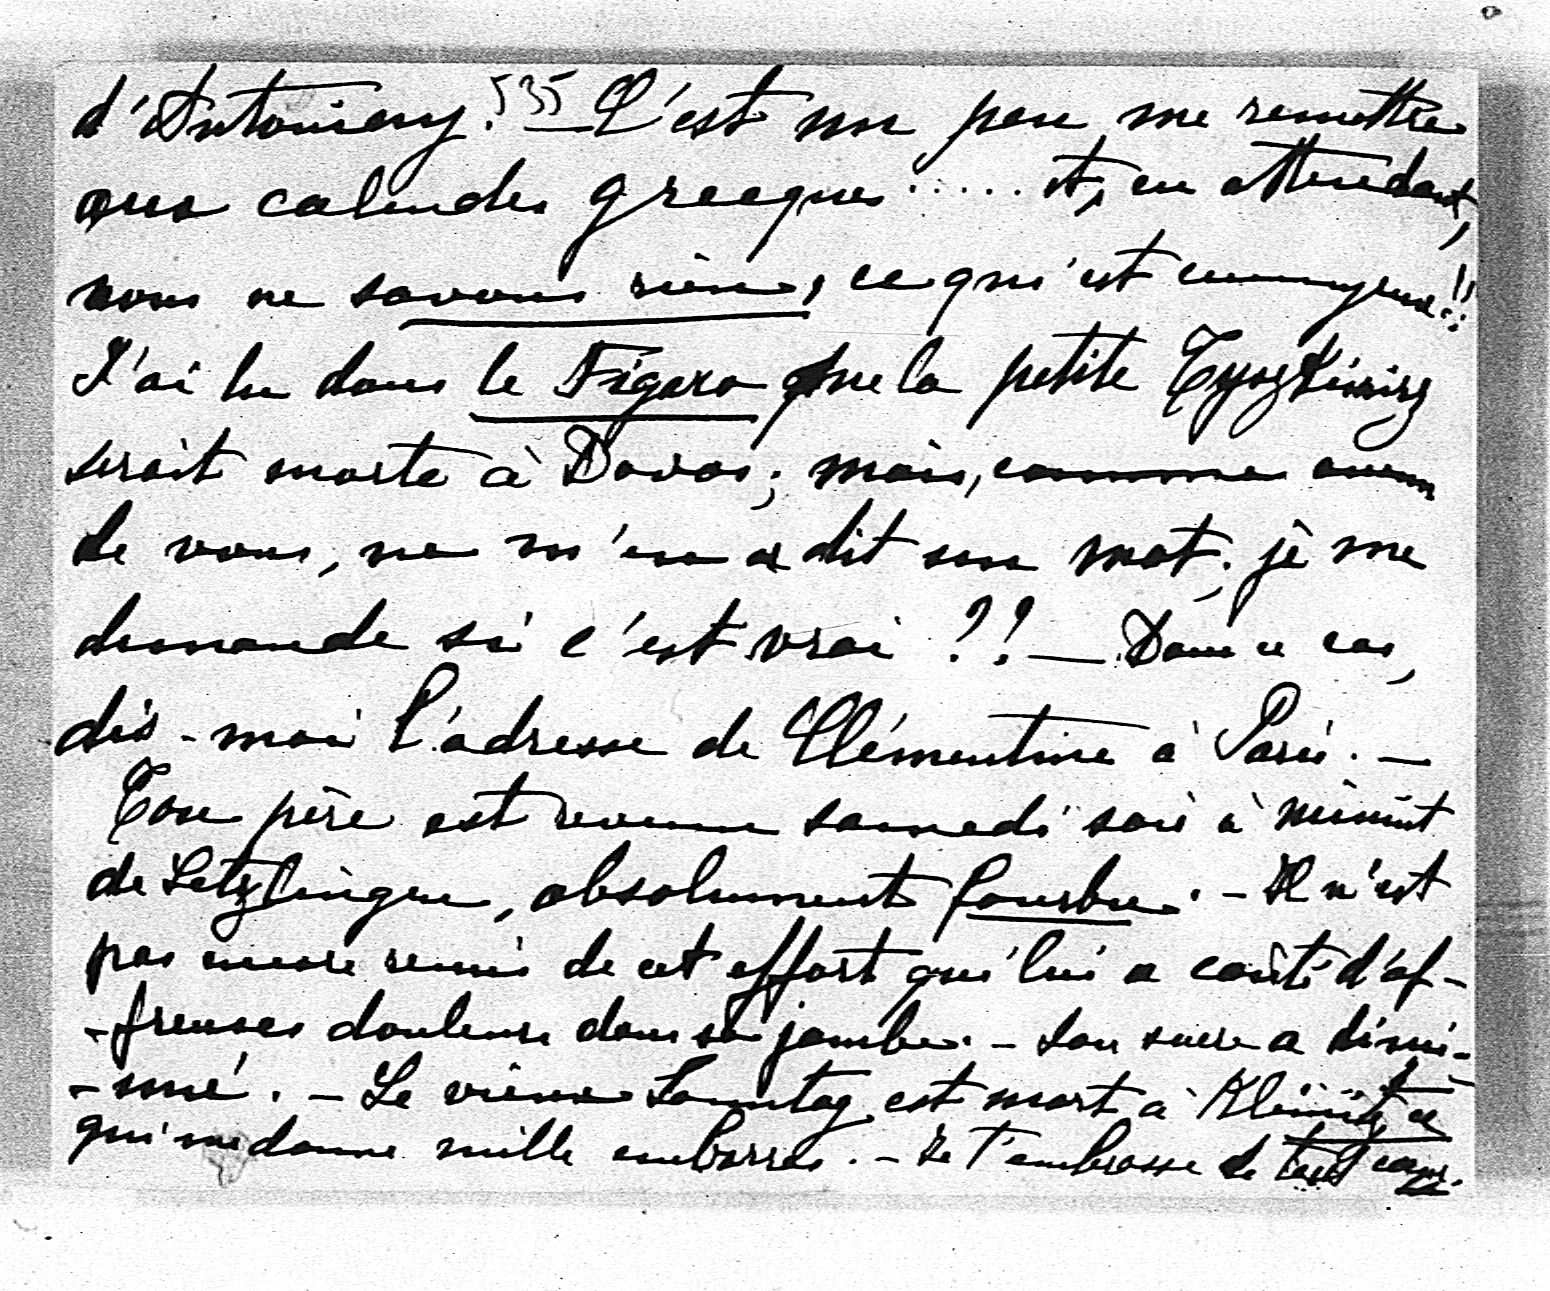 d'Antoniny. 535 — C'est un peu me remettre
aux calendes grecques ..... et, en attendant,
nous ne savons rien, ce qui est ennuyeux!!
J'ai lu dans le Figaro que la petite Tyszkiewicz
serait morte à Davos; mais, comme aucun
de vous, ne m'en a dit un mot, je me
demande si c'est vrai ?? — Dans ce cas,
dis-moi l'adresse de Clémentine à Paris. —
Ton père est revenu samedi soir à minuit
de Letzlingen, absolument fourbu. — Il n'est
pas encore remis de cet effort qui lui a coûté d'af-
-freuses douleurs dans sa jambe. — Son sucre a dimi-
-nué. — Le vieux Sonntag est mort à Kleinitz, ce
qui me donne mille embarras. — Je t'embrasse de tout cœur.